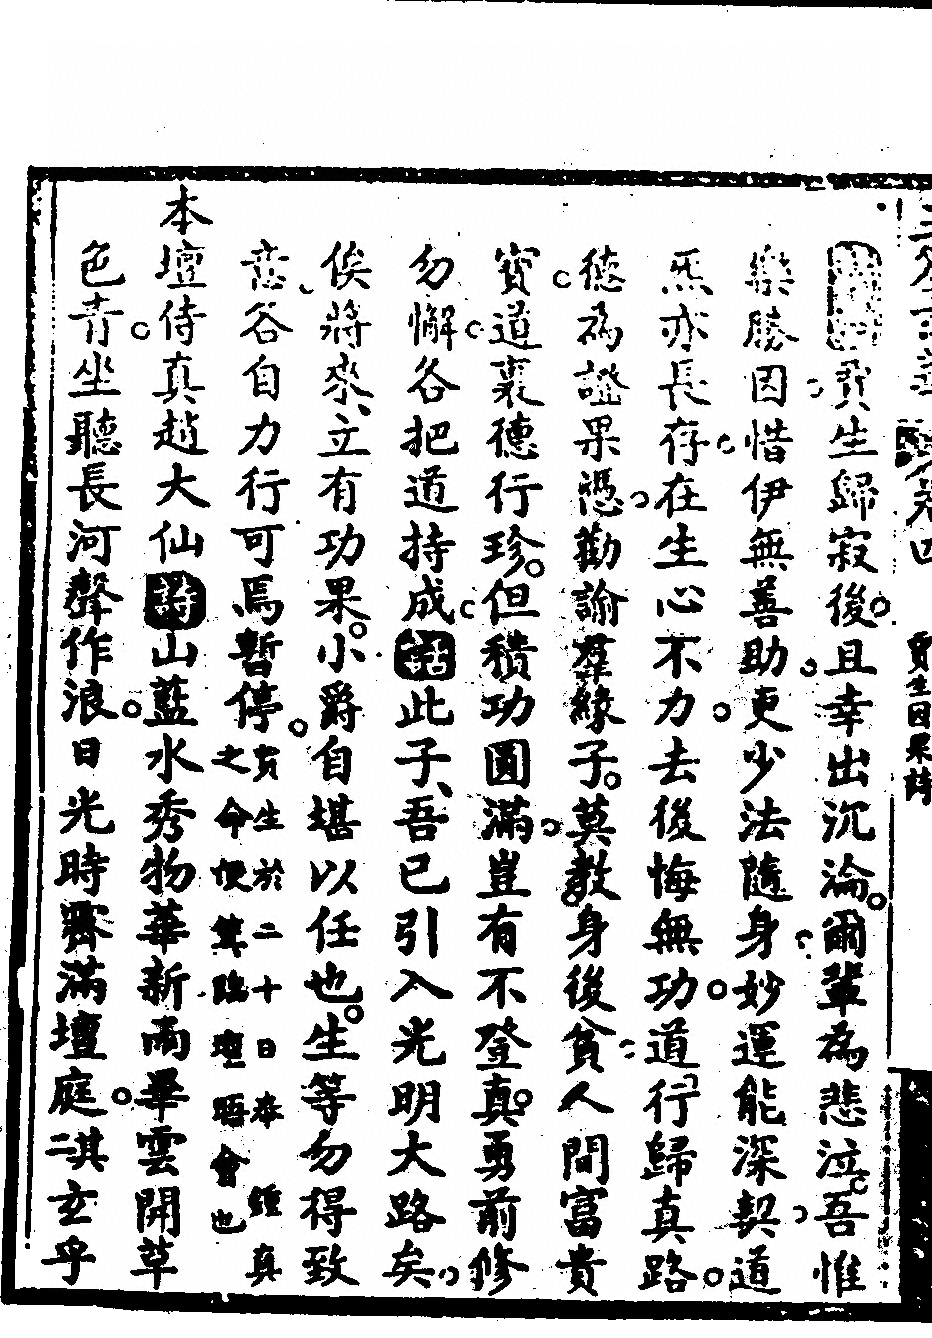 賈生歸寂後且幸出沉淪爾輩為悲泣吾惟
樂勝因惜伊無善助更少法隨身妙運能深契道
炁亦長存在生心不力去後悔無功道行歸真路
德為證果憑勸諭羣緣子莫教身後貧人間富貴
寶道裏德行珍但積功圓滿豈有不登真勇前修
勿懈各把道持成話此子吾已引入光明大路矣
俟將來立有功果小爵自堪以任也生等勿得致
意各自力行可焉暫停
賈生於二十日奉鍾真
之命便箕臨壇晤會也
本壇侍真趙大仙詩山藍水秀物華新雨畢雲開草
色青坐聽長河聲作浪日光時霽滿壇庭二淇玄乎
卷四
賈生因果詩